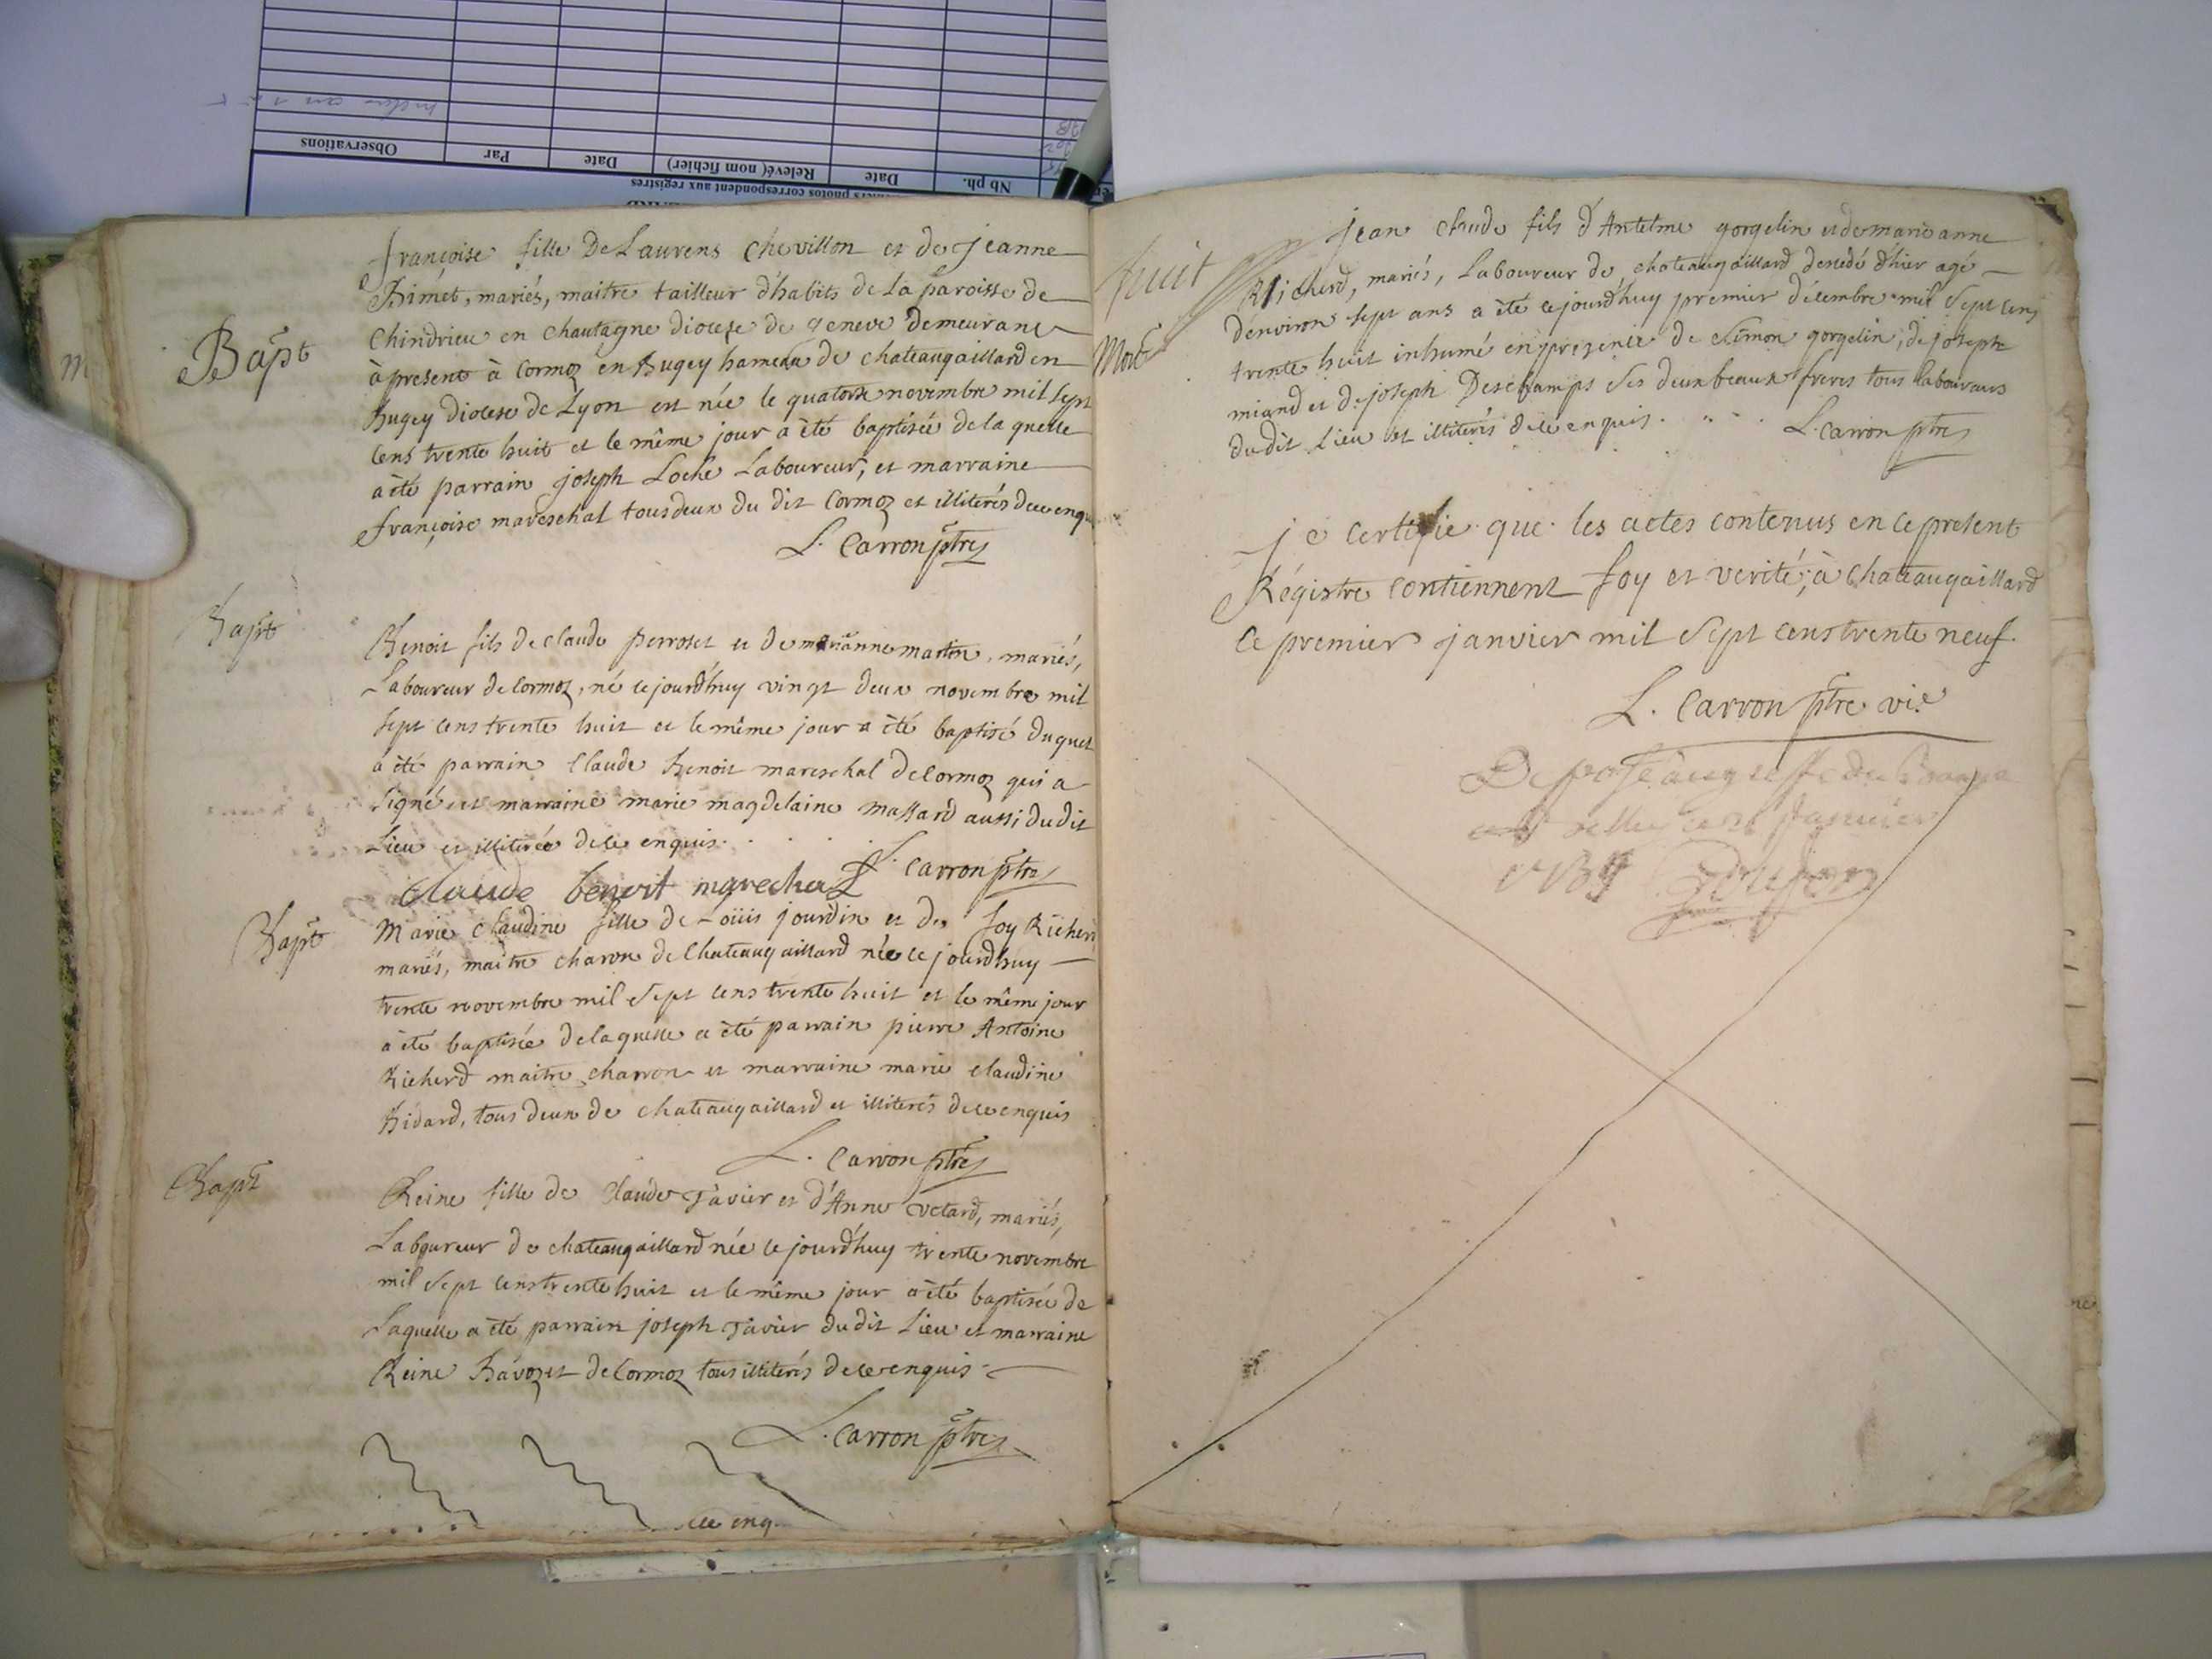 Observations
Par
Date
Relevé( nom fichier)
Date
Nb ph.
photos correspondent aux registres
françoise fille De Laurens Chevillon et de jeanne
Bimet, mariés, maitre tailleur d'habits de la paroisse de
Chindrieu en chautagne diocese de geneve demeurant
Bapt
à present à Cormoz en Bugey hameau de chateaugaillard en
Bugey diocese de Lyon est née le quatorze novembre mil sept
cens trente huit et le même jour a été baptisée de la quelle
a été parrain joseph Loche Laboureur, et marraine
françoise mareschal tous deux du dit Cormoz et illiterés de ce enq
L. Carron ptre
Bapt
Benoit fils de claude perroset et de marianne martin, mariés,
Laboureur de Cormoz, né cejourd'huy vingt deux novembre mil
sept cens trente huit et le même jour a été baptisé duquel
a été parrain Claude Benoit mareschal de Cormoz qui a
signé et marraine marie magdelaine massard aussi du dit
Lieu et illiterée de ce enquis.
L. Carron ptre
claude benoit marechal
Bapt
Marie claudine fille de Loüis jourdin et de foy Richerd
mariés, maitre charon de Chateaugaillard née cejourdhuy
trente novembre mil sept cens trente huit et le même jour
a été baptisée de laquelle a été parrain pierre Antoine
Richerd maitre charron et marraine marie claudine
Bidard, tous deux de chateaugaillard et illiterés de ce enquis
L. Carron ptre
Bapt
Reine fille de Claude Tavier et d'Anne Vetard, mariés,
Laboureur de chateaugaillard née cejourd'huy trente novembre
mil sept cens trente huit et le même jour a été baptisée de
Laquelle a été parrain joseph Tavier dudit Lieu et marraine
Reine Bavozet de Cormoz tous illiterés de ce enquis
L. Carron ptre
ce enq
jean claude fils d'Antelme gorgelin et de marie anne
huit
Richerd, mariés, Laboureur de chateaugaillard decedé d'hier agé
d'environ sept ans a été cejourd'huy premier décembre mil sept cens
Mort
trente huit inhumé en presence de Simon gorgelin, de joseph
miand et de joseph Deschamps ses deux beaux freres tous laboureurs
du dit Lieu et illiterés de ce enquis.
L. Carron ptre
je certifie que les actes contenus en ce present
Régistre contiennent foy et verité; à Chateaugaillard
ce premier janvier mil sept cens trente neuf.
L. Carron ptre vic
Deposé au greffe du
janvier